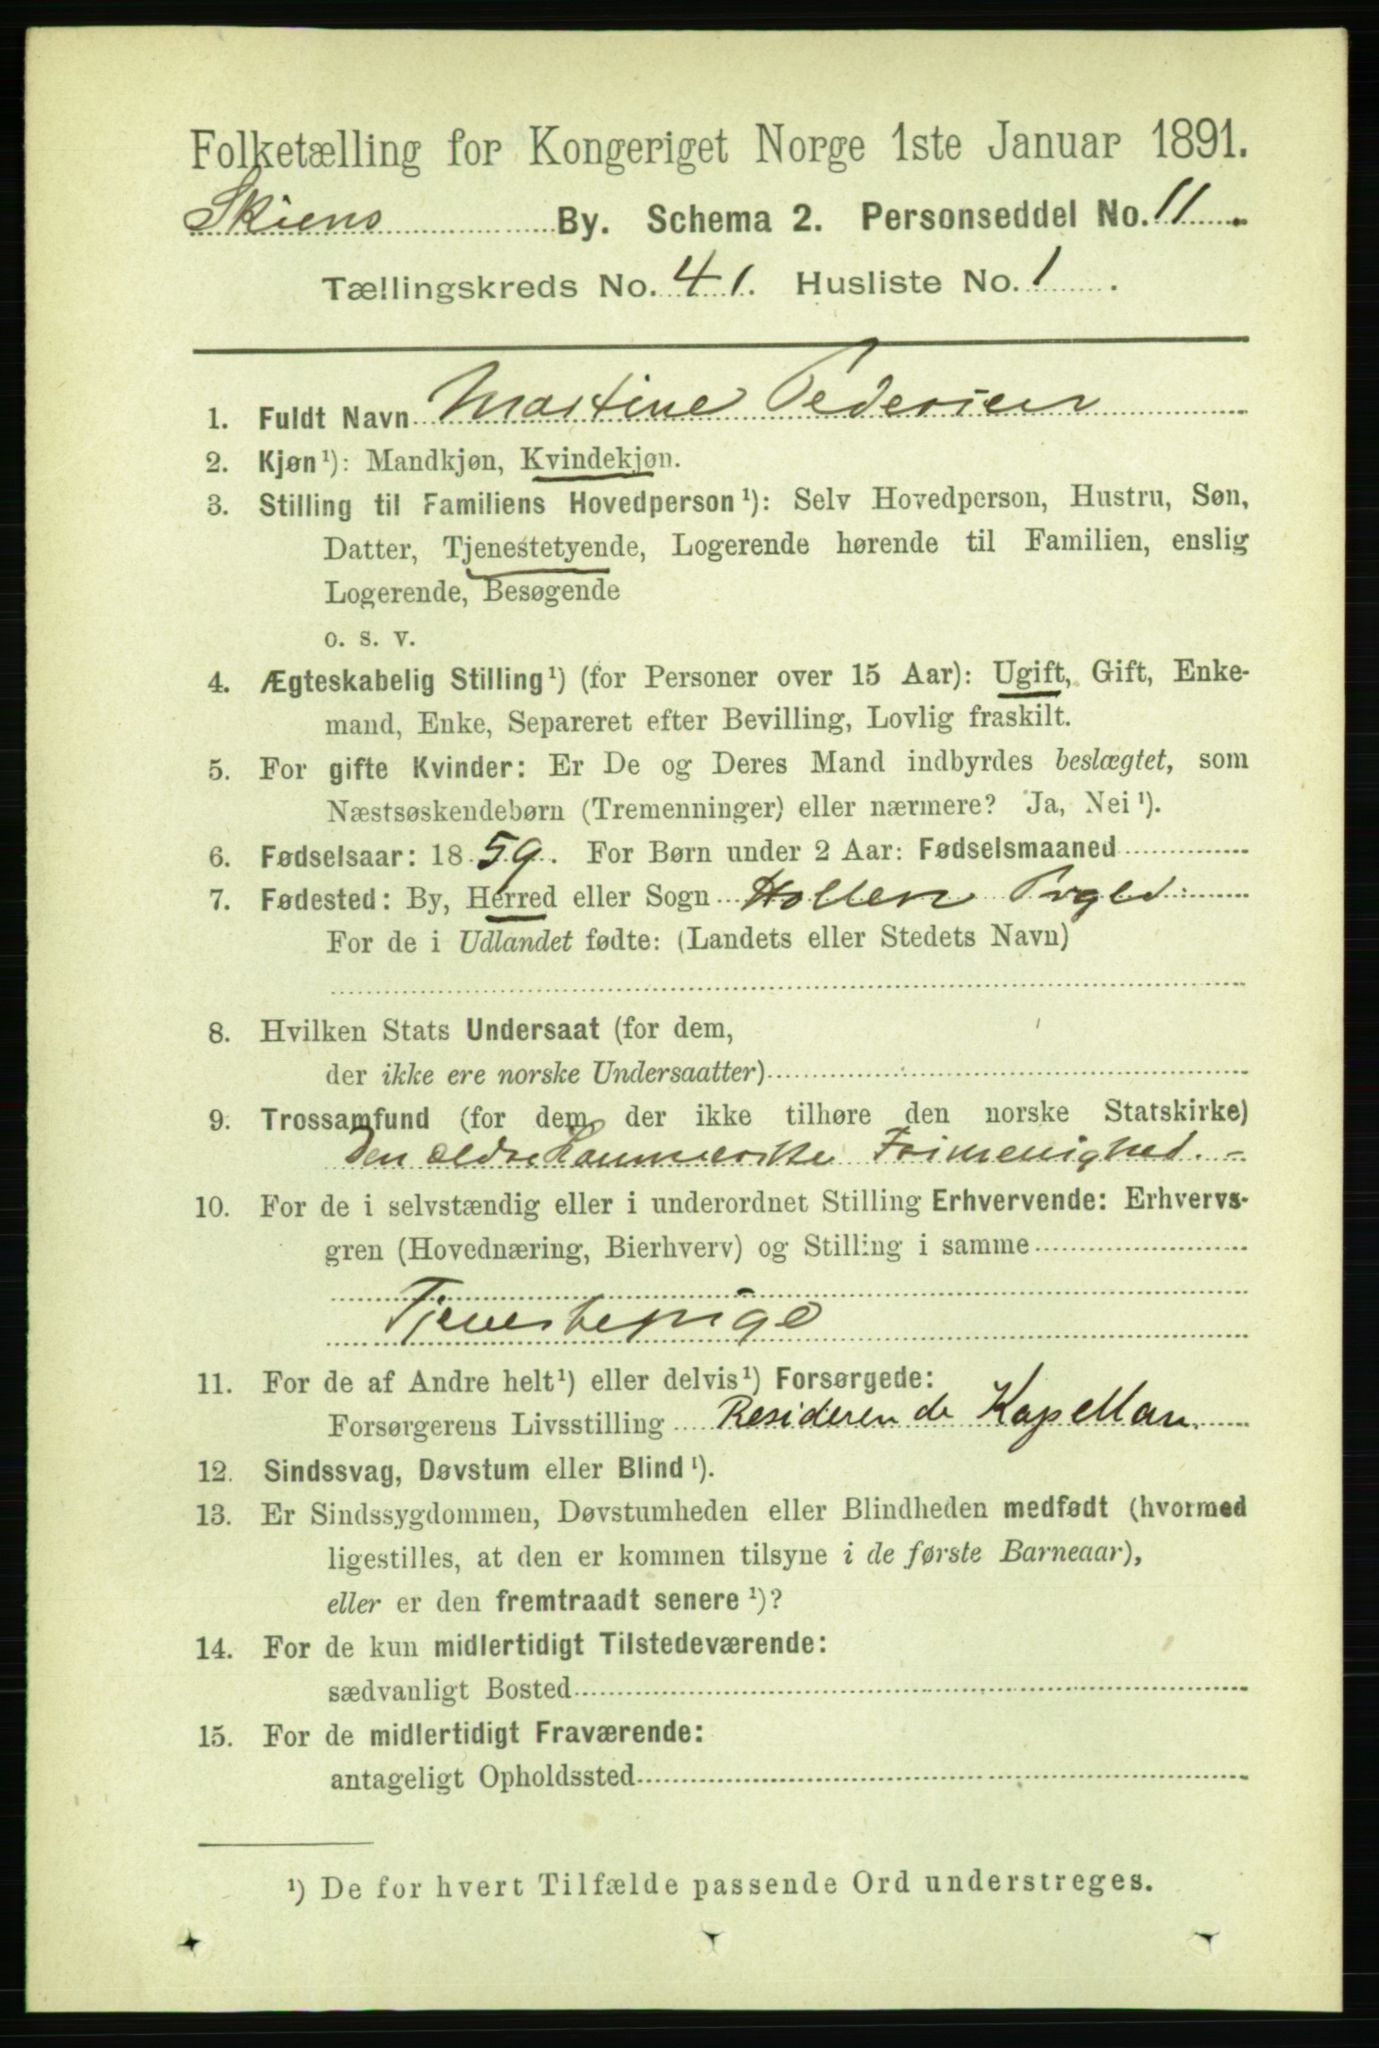 Folketælling for Kongeriget Norge 1ste Januar 1891.
Skiens By. Schema 2. Personseddel No. 11.
Tællingskreds No. 41. Husliste No. 1.
1. Fuldt Navn Martine Pedersen
2. Kjøn¹): Mandkjøn, Kvindekjøn.
3. Stilling til Familiens Hovedperson¹): Selv Hovedperson, Hustru, Søn,
Datter, Tjenestetyende, Logerende hørende til Familien, enslig
Logerende, Besøgende
o. s. v.
4. Ægteskabelig Stilling¹) (for Personer over 15 Aar): Ugift, Gift, Enke-
mand, Enke, Separeret efter Bevilling, Lovlig fraskilt.
5. For gifte Kvinder: Er De og Deres Mand indbyrdes beslægtet, som
Næstsøskendebørn (Tremenninger) eller nærmere? Ja, Nei¹).
6. Fødselsaar: 1859. For Børn under 2 Aar: Fødselsmaaned
7. Fødested: By, Herred eller Sogn Hollen Prgld:
For de i Udlandet fødte: (Landets eller Stedets Navn)
8. Hvilken Stats Undersaat (for dem,
der ikke ere norske Undersaatter)
9. Trossamfund (for dem, der ikke tilhøre den norske Statskirke)
Den ældre Lammerske Frimenighed. -
10. For de i selvstændig eller i underordnet Stilling Erhvervende: Erhvervs-
gren (Hovednæring, Bierhverv) og Stilling i samme
Tjenestepige
11. For de af Andre helt¹) eller delvis¹) Forsørgede:
Forsørgerens Livsstilling Residerende Kapellan.
12. Sindssvag, Døvstum eller Blind¹).
13. Er Sindssygdommen, Døvstumheden eller Blindheden medfødt (hvormed
ligestilles, at den er kommen tilsyne i de første Barneaar),
eller er den fremtraadt senere¹)?
14. For de kun midlertidigt Tilstedeværende:
sædvanligt Bosted
15. For de midlertidigt Fraværende:
antageligt Opholdssted
¹) De for hvert Tilfælde passende Ord understreges.